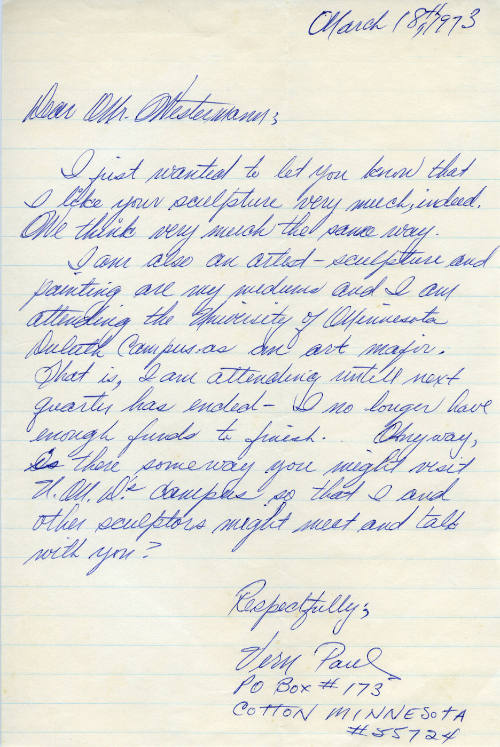 March 18th, 1973
Dear Mr. Westermann;
I just wanted to let you know that
I like your sculpture very much, indeed.
We think very much the same way.
I am also an artest - sculpture and
painting are my mediums and I am
attending the University of Minnesota
Duluth Campus as an art major.
That is, I am attending untill next
quarter has ended - I no longer have
enough funds to finish. . Anyway,
is there someway you might visit
U. M. D.'s campus so that I and
other sculptors might meet and talk
with you?
Respectfully;
Vern Paul
PO Box # 173
COTTON MINNESOTA
#55724